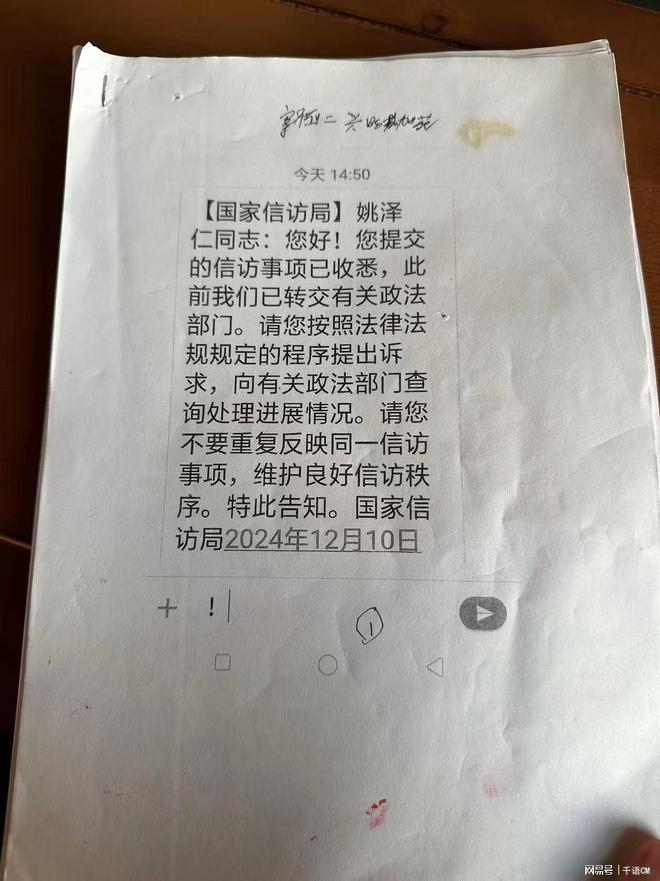 今天 14:50
【国家信访局】姚泽
仁同志：您好！您提交
的信访事项已收悉，此
前我们已转交有关政法
部门。请您按照法律法
规规定的程序提出诉
求，向有关政法部门查
询处理进展情况。请您
不要重复反映同一信访
事项，维护良好信访秩
序。特此告知。国家信
访局2024年12月10日
！
1
网易号 | 千语CM